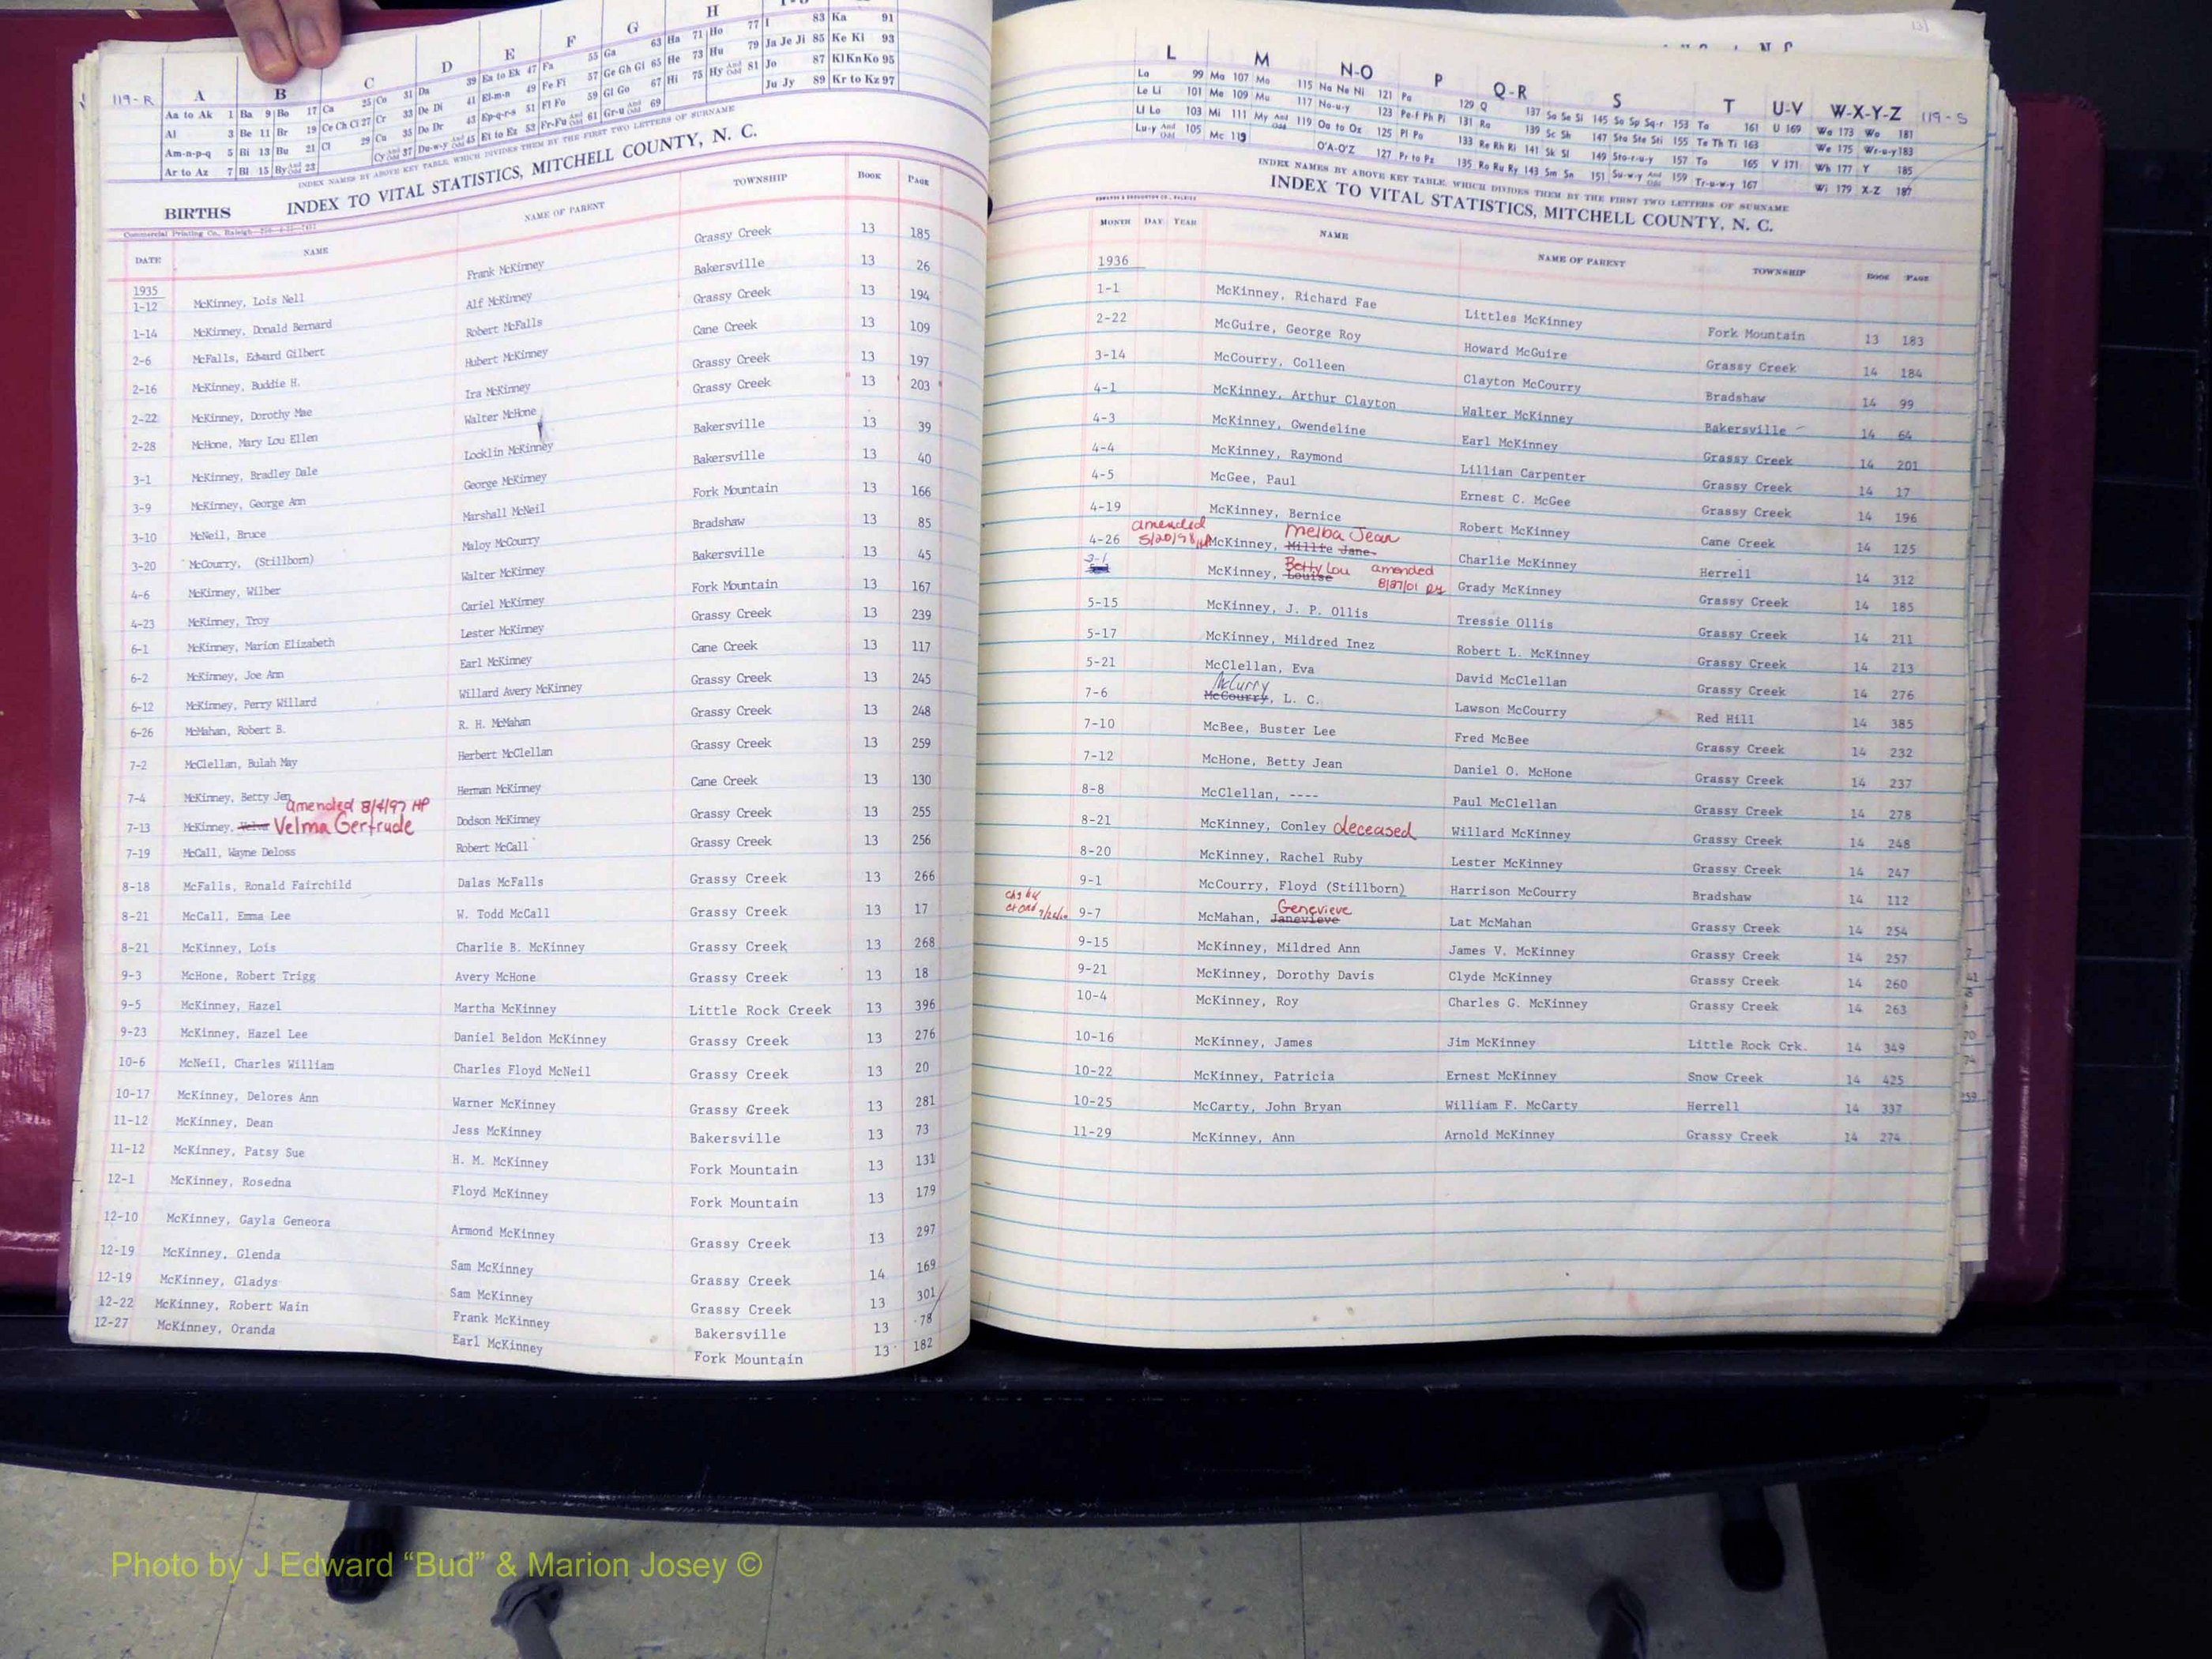 119-R
A B C D E F G H
Aa to Ak 1 Ba 9 Bo 17 Ca 25 Co 31 Da 39 Ea to Ek 47 Fa 55 Ga 63 Ha 71 Ho 77 I 83 Ka 91
Al 3 Be 11 Br 19 Ce Ch Ci 27 Cr 33 De Di 41 El-m-n 49 Fe Fi 57 Ge Gh Gi 65 He 73 Hu 79 Ja Je Ji 85 Ke Ki 93
Am-n-p-q 5 Bi 13 Bu 21 Cl 29 Cu 35 Do Dr 43 Ep-q-r-s 51 Fl Fo 59 Gl Go 67 Hi 75 Hy And Odd 81 Jo 87 Kl Kn Ko 95
Ar to Az 7 Bl 15 By And Odd 23 Cy And Odd 37 Du-w-y And Odd 45 Et to Ez 53 Fr-Fu And Odd 61 Gr-u And Odd 69 Ju Jy 89 Kr to Kz 97
INDEX NAMES BY ABOVE KEY TABLE, WHICH DIVIDES THEM BY THE FIRST TWO LETTERS OF SURNAME
BIRTHS INDEX TO VITAL STATISTICS, MITCHELL COUNTY, N. C.
Commercial Printing Co., Raleigh
DATE NAME NAME OF PARENT TOWNSHIP BOOK PAGE
1935
1-12 McKinney, Lois Nell Frank McKinney Grassy Creek 13 185
1-14 McKinney, Donald Bernard Alf McKinney Bakersville 13 26
2-6 McFalls, Edward Gilbert Robert McFalls Grassy Creek 13 194
2-16 McKinney, Buddie H. Hubert McKinney Cane Creek 13 109
2-22 McKinney, Dorothy Mae Ira McKinney Grassy Creek 13 197
2-28 McHone, Mary Lou Ellen Walter McHone Grassy Creek 13 203
3-1 McKinney, Bradley Dale Locklin McKinney Bakersville 13 39
3-9 McKinney, George Ann George McKinney Bakersville 13 40
3-10 McNeil, Bruce Marshall McNeil Fork Mountain 13 166
3-20 McCourry, (Stillborn) Maloy McCourry Bradshaw 13 85
4-6 McKinney, Wilber Walter McKinney Bakersville 13 45
4-23 McKinney, Troy Cariel McKinney Fork Mountain 13 167
6-1 McKinney, Marion Elizabeth Lester McKinney Grassy Creek 13 239
6-2 McKinney, Joe Ann Earl McKinney Cane Creek 13 117
6-12 McKinney, Perry Willard Willard Avery McKinney Grassy Creek 13 245
6-26 McMahan, Robert B. R. H. McMahan Grassy Creek 13 248
7-2 McClellan, Bulah May Herbert McClellan Grassy Creek 13 259
7-4 McKinney, Betty Jen Herman McKinney Cane Creek 13 130
amended 8/4/97 HP
7-13 McKinney, Velma Gertrude Dodson McKinney Grassy Creek 13 255
7-19 McCall, Wayne Deloss Robert McCall Grassy Creek 13 256
8-18 McFalls, Ronald Fairchild Dalas McFalls Grassy Creek 13 266
8-21 McCall, Emma Lee W. Todd McCall Grassy Creek 13 17
8-21 McKinney, Lois Charlie B. McKinney Grassy Creek 13 268
9-3 McHone, Robert Trigg Avery McHone Grassy Creek 13 18
9-5 McKinney, Hazel Martha McKinney Little Rock Creek 13 396
9-23 McKinney, Hazel Lee Daniel Beldon McKinney Grassy Creek 13 276
10-6 McNeil, Charles William Charles Floyd McNeil Grassy Creek 13 20
10-17 McKinney, Delores Ann Warner McKinney Grassy Creek 13 281
11-12 McKinney, Dean Jess McKinney Bakersville 13 73
11-12 McKinney, Patsy Sue H. M. McKinney Fork Mountain 13 131
12-1 McKinney, Rosedna Floyd McKinney Fork Mountain 13 179
12-10 McKinney, Gayla Geneora Armond McKinney Grassy Creek 13 297
12-19 McKinney, Glenda Sam McKinney Grassy Creek 14 169
12-19 McKinney, Gladys Sam McKinney Grassy Creek 13 301
12-22 McKinney, Robert Wain Frank McKinney Bakersville 13 78
12-27 McKinney, Oranda Earl McKinney Fork Mountain 13 182
L M N-O P Q-R S T U-V W-X-Y-Z 119-S
La 99 Ma 107 Mo 115 Na Ne Ni 121 Pa 129 Q 137 Sa Se Si 145 So Sp Sq-r 153 Ta 161 U 169 Wa 173 Wo 181
Le Li 101 Me 109 Mu 117 No-u-y 123 Pe-f Ph Pi 131 Ra 139 Sc Sh 147 Sta Ste Sti 155 Te Th Ti 163 We 175 Wr-u-y 183
Ll Lo 103 Mi 111 My And Odd 119 Oa to Oz 125 Pl Po 133 Re Rh Ri 141 Sk Sl 149 Sto-r-u-y 157 To 165 V 171 Wh 177 Y 185
Lu-y And Odd 105 Mc 113 O'A-O'Z 127 Pr to Pz 135 Ro Ru Ry 143 Sm Sn 151 Su-w-y And Odd 159 Tr-u-w-y 167 Wi 179 X-Z 187
INDEX NAMES BY ABOVE KEY TABLE, WHICH DIVIDES THEM BY THE FIRST TWO LETTERS OF SURNAME
INDEX TO VITAL STATISTICS, MITCHELL COUNTY, N. C.
EDWARDS & BROUGHTON CO., RALEIGH
MONTH DAY YEAR NAME NAME OF PARENT TOWNSHIP BOOK PAGE
1936
1-1 McKinney, Richard Fae Littles McKinney Fork Mountain 13 183
2-22 McGuire, George Roy Howard McGuire Grassy Creek 14 184
3-14 McCourry, Colleen Clayton McCourry Bradshaw 14 99
4-1 McKinney, Arthur Clayton Walter McKinney Bakersville 14 64
4-3 McKinney, Gwendeline Earl McKinney Grassy Creek 14 201
4-4 McKinney, Raymond Lillian Carpenter Grassy Creek 14 17
4-5 McGee, Paul Ernest C. McGee Grassy Creek 14 196
4-19 McKinney, Bernice Robert McKinney Cane Creek 14 125
amended 5/20/98 Melba Jean
4-26 McKinney, Millie Jane Charlie McKinney Herrell 14 312
3-1 Betty Lou amended 8/27/01
McKinney, Louise Grady McKinney Grassy Creek 14 185
5-15 McKinney, J. P. Ollis Tressie Ollis Grassy Creek 14 211
5-17 McKinney, Mildred Inez Robert L. McKinney Grassy Creek 14 213
5-21 McClellan, Eva David McClellan Grassy Creek 14 276
McCurry
7-6 McCourry, L. C. Lawson McCourry Red Hill 14 385
7-10 McBee, Buster Lee Fred McBee Grassy Creek 14 232
7-12 McHone, Betty Jean Daniel O. McHone Grassy Creek 14 237
8-8 McClellan, ---- Paul McClellan Grassy Creek 14 278
8-21 McKinney, Conley deceased Willard McKinney Grassy Creek 14 248
8-20 McKinney, Rachel Ruby Lester McKinney Grassy Creek 14 247
9-1 McCourry, Floyd (Stillborn) Harrison McCourry Bradshaw 14 112
Genevieve
9-7 McMahan, Janevieve Lat McMahan Grassy Creek 14 254
9-15 McKinney, Mildred Ann James V. McKinney Grassy Creek 14 257
9-21 McKinney, Dorothy Davis Clyde McKinney Grassy Creek 14 260
10-4 McKinney, Roy Charles G. McKinney Grassy Creek 14 263
10-16 McKinney, James Jim McKinney Little Rock Crk. 14 349
10-22 McKinney, Patricia Ernest McKinney Snow Creek 14 425
10-25 McCarty, John Bryan William F. McCarty Herrell 14 337
11-29 McKinney, Ann Arnold McKinney Grassy Creek 14 274
Photo by J Edward “Bud” & Marion Josey ©